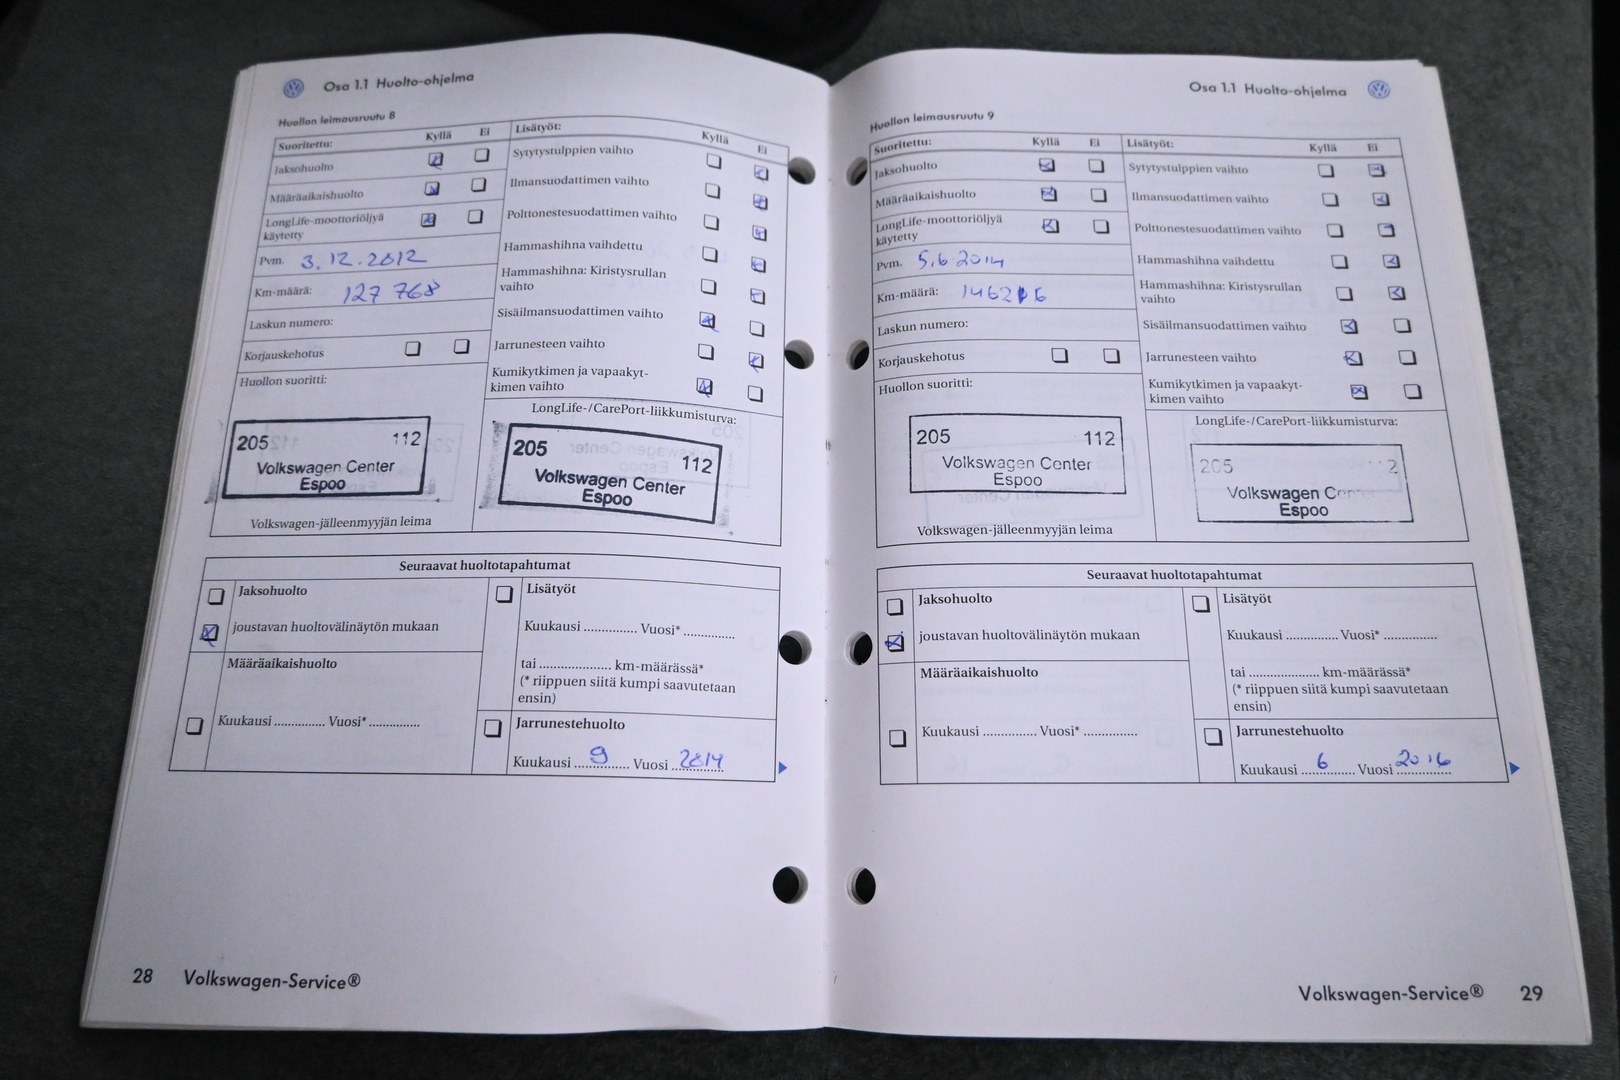 Osa 1.1 Huolto-ohjelma
Huollon leimausruutu 8
Suoritettu: Kyllä Ei
Jaksohuolto
Määräaikaishuolto
LongLife-moottoriöljyä
käytetty
Pvm. 3.12.2012
Km-määrä: 127 768
Laskun numero:
Korjauskehotus
Huollon suoritti:
205 112
Volkswagen Center
Espoo
Volkswagen-jälleenmyyjän leima
Lisätyöt: Kyllä Ei
Sytytystulppien vaihto
Ilmansuodattimen vaihto
Polttonestesuodattimen vaihto
Hammashihna vaihdettu
Hammashihna: Kiristysrullan
vaihto
Sisäilmansuodattimen vaihto
Jarrunesteen vaihto
Kumikytkimen ja vapaakyt-
kimen vaihto
LongLife-/CarePort-liikkumisturva:
205 112
Volkswagen Center
Espoo
Seuraavat huoltotapahtumat
Jaksohuolto
joustavan huoltovälinäytön mukaan
Määräaikaishuolto
Kuukausi .............. Vuosi* ..............
Lisätyöt
Kuukausi .............. Vuosi* ..............
tai .................... km-määrässä*
(* riippuen siitä kumpi saavutetaan
ensin)
Jarrunestehuolto
Kuukausi 9 Vuosi 2014
28 Volkswagen-Service®
Osa 1.1 Huolto-ohjelma
Huollon leimausruutu 9
Suoritettu: Kyllä Ei
Jaksohuolto
Määräaikaishuolto
LongLife-moottoriöljyä
käytetty
Pvm. 5.6.2014
Km-määrä:
Laskun numero:
Korjauskehotus
Huollon suoritti:
205 112
Volkswagen Center
Espoo
Volkswagen-jälleenmyyjän leima
Lisätyöt: Kyllä Ei
Sytytystulppien vaihto
Ilmansuodattimen vaihto
Polttonestesuodattimen vaihto
Hammashihna vaihdettu
Hammashihna: Kiristysrullan
vaihto
Sisäilmansuodattimen vaihto
Jarrunesteen vaihto
Kumikytkimen ja vapaakyt-
kimen vaihto
LongLife-/CarePort-liikkumisturva:
205
Volkswagen
Espoo
Seuraavat huoltotapahtumat
Jaksohuolto
joustavan huoltovälinäytön mukaan
Määräaikaishuolto
Kuukausi .............. Vuosi* ..............
Lisätyöt
Kuukausi .............. Vuosi* ..............
tai .................... km-määrässä*
(* riippuen siitä kumpi saavutetaan
ensin)
Jarrunestehuolto
Kuukausi 6 Vuosi 2016
Volkswagen-Service® 29